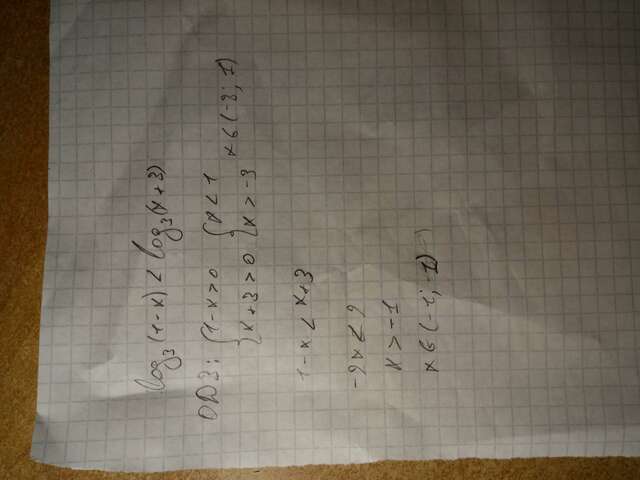 log₃(1-x) < log₃(x+3)
ОДЗ: {1-x>0 {x<1
{x+3>0 {x>-3 x∈(-3; 1)
1-x < x+3
-2x < 2
x > -1
x∈(-1; 1)